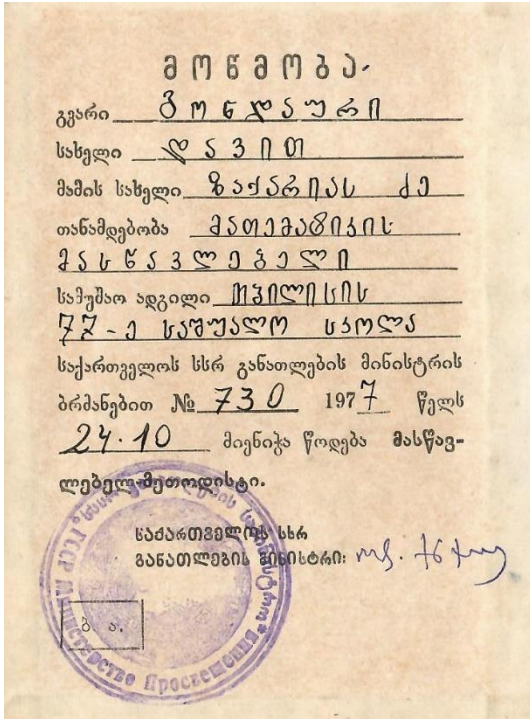 მოწმობა.
გვარი ბონდაური
სახელი დავით
მამის სახელი ზაქარიას ძე
თანამდებობა მათემატიკის
მასწავლებელი
სამუშაო ადგილი თბილისის
77-ე საშუალო სკოლა
საქართველოს სსრ განათლების მინისტრის
ბრძანებით № 730 1977 წელს
24.10 მიენიჭა წოდება მასწავ-
ლებელ-მეთოდისტი.
საქართველოს სსრ
განათლების მინისტრი:
ბ. ა.
ГССР Министерство Просвещения